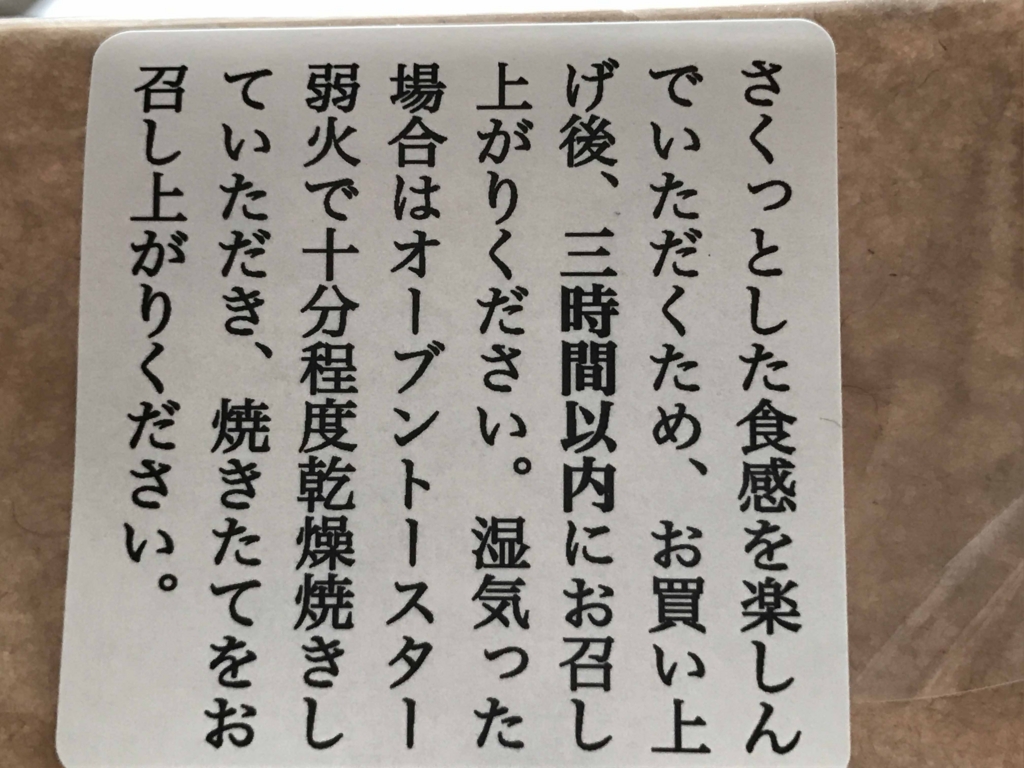 さくっとした食感を楽しん
でいただくため、お買い上
げ後、三時間以内にお召し
上がりください。湿気った
場合はオーブントースター
弱火で十分程度乾燥焼きし
ていただき、焼きたてをお
召し上がりください。